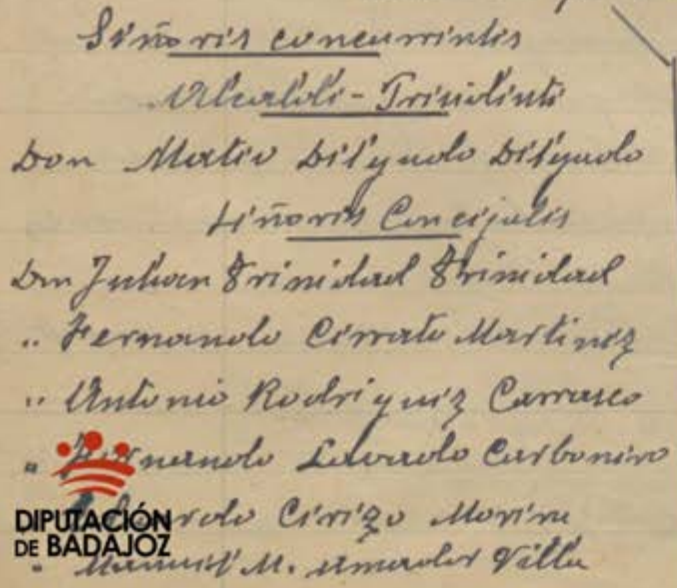 Señores concurrentes
Alcalde-Presidente
Don Mateo Delgado Delgado
Señores Concejales
Don Julian Trinidad Trinidad
" Fernando Cerrato Martinez
" Antonio Rodriguez Carrasco
" Fernando Lavado Carbonero
Cerezo
" Manuel M. Amador Villa
DIPUTACIÓN
DE BADAJOZ